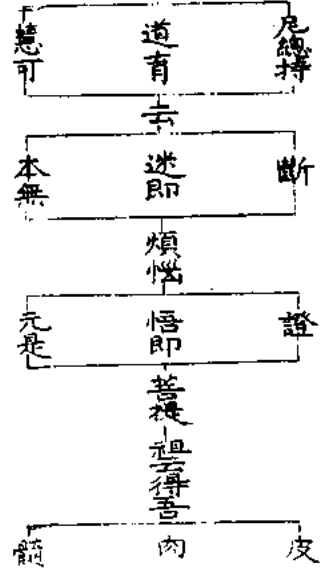 尼總持 道育 慧可
云
斷 迷即 本無
煩惱
證 悟即 元是
菩提
祖云得吾
皮 肉 髓